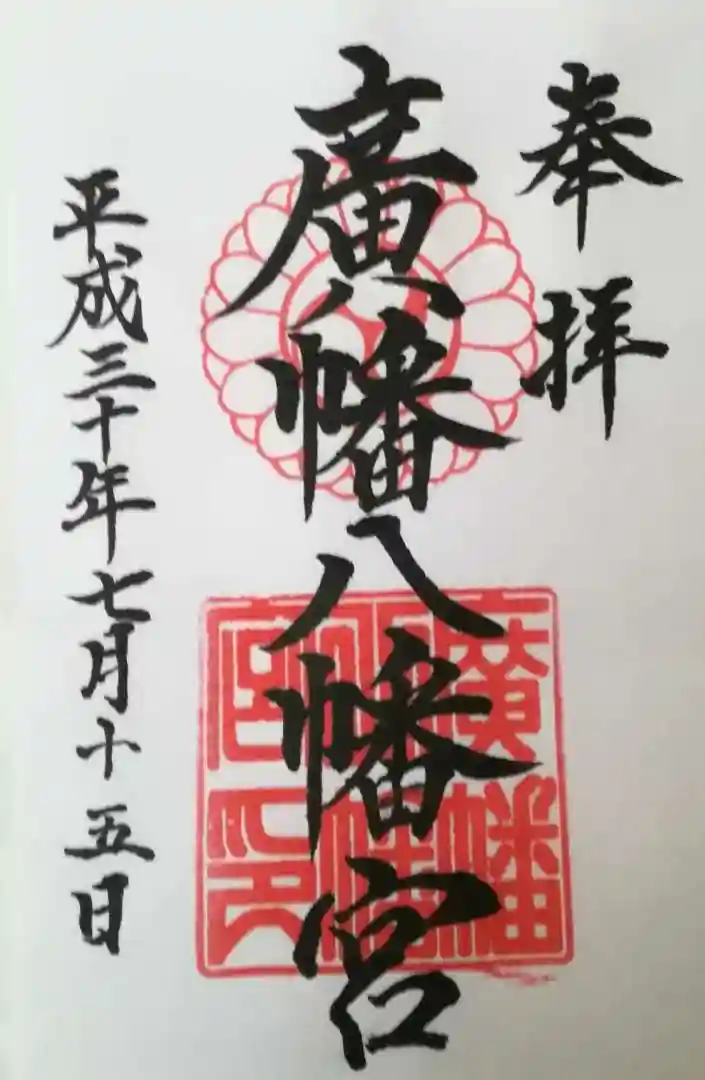 奉拝
廣幡八幡宮
平成三十年七月十五日
廣幡
八幡
宮印